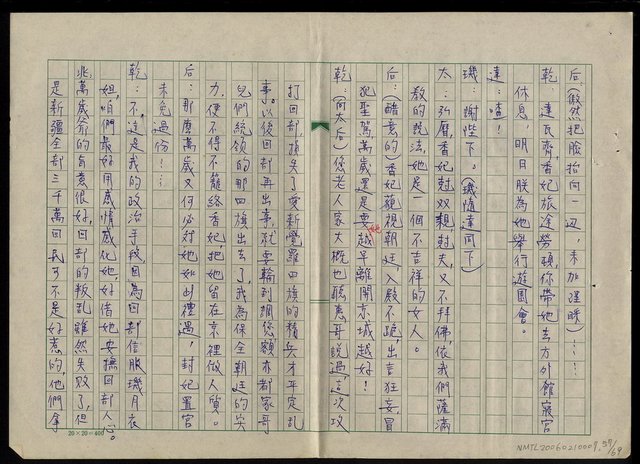 后：(傲然把臉抬向一边，未加理睬)……
乾：達瓦齊，香妃旅途勞頓，你帶她去方外館寢宮
休息，明日朕為她舉行遊園會。
達：喳！
璣：謝陛下。(璣隨達同下)
太：弘曆，香妃尅双親尅夫，又不拜佛，依我們薩滿
教的說法，她是一個不吉祥的女人。
后：(醋意的)香妃藐視朝廷，入殿不跪，出言狂妄，冒
犯聖駕，萬歲還是要越早離開京城越好！
乾：(向太后)您老人家大概也聽惠哥說過，這次攻
打回部，損失了愛新覺羅四旗的精兵才平定亂
事。以後回部再出事，就要輪到調您額亦都家哥
兒們統領的那四旗出去了，我為保全朝廷的实
力，便不得不籠絡香妃，把她留在京裡做人質。
后：那麼萬歲又何必对她如此禮遇，封妃置宮
未免過份……
乾：不，這是我的政治手段，因為回部信服璣月衣
妲，咱們最好用感情感化她，好借她安撫回部人心。
兆：萬歲爺的旨意很好，回部的叛乱雖然失敗了，但
是新疆全部三千萬回民可不是好惹的，他們拿
20×20=400
NMTL20060210009. 59/69